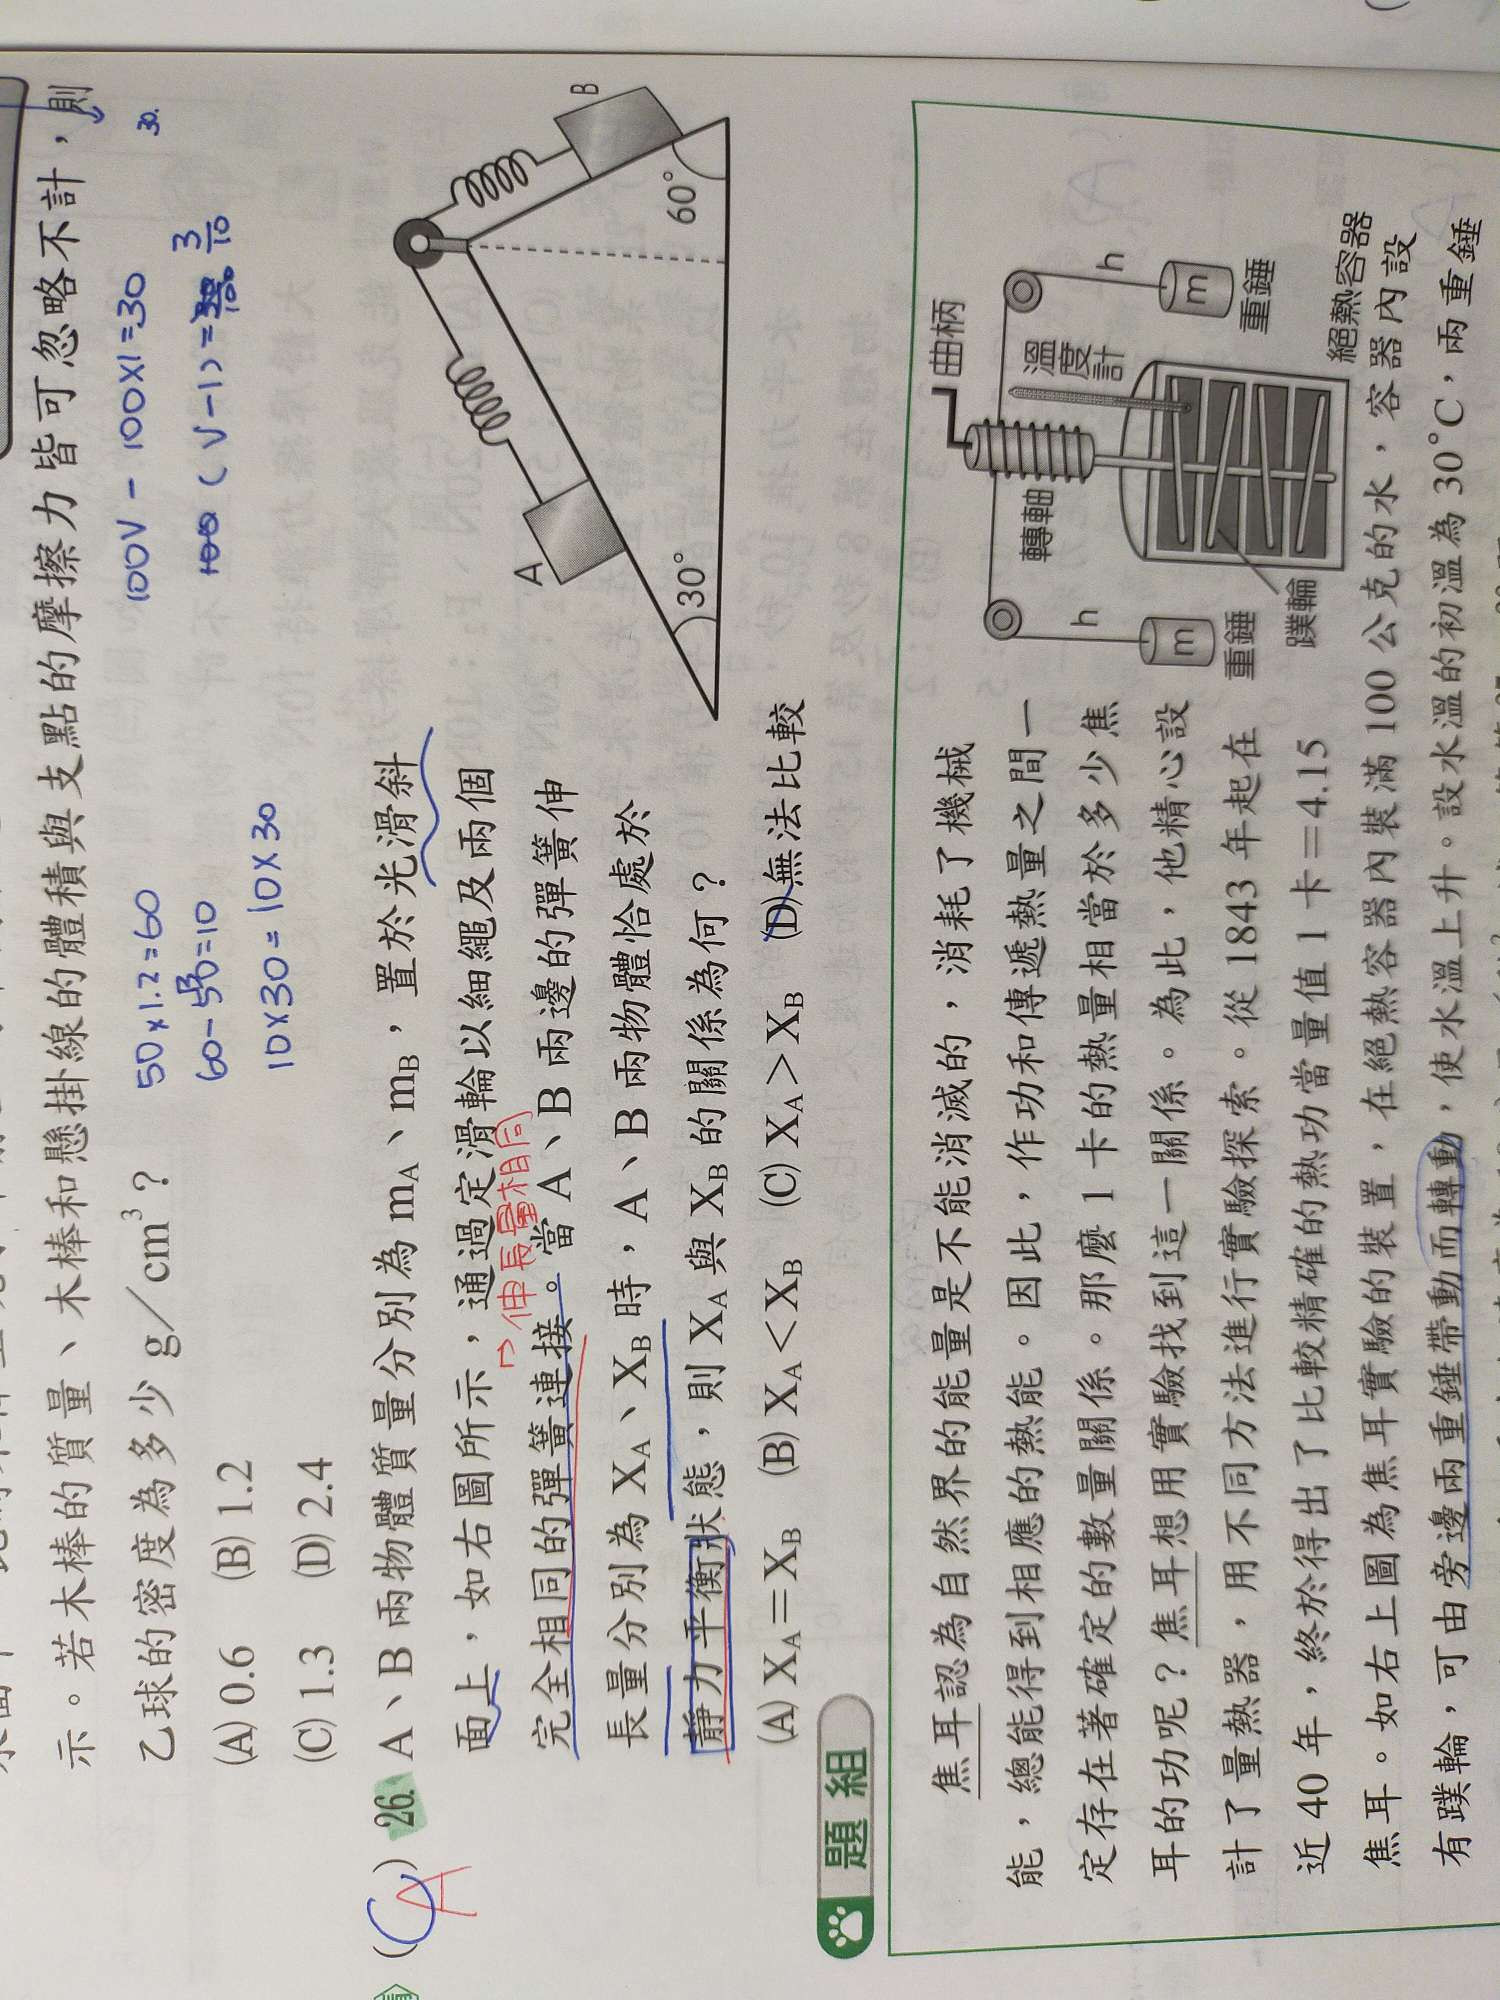 示。若木棒的質量、木棒和懸掛線的體積與支點的摩擦力皆可忽略不計,則
乙球的密度為多少 g/cm³?
(A) 0.6 (B) 1.2
(C) 1.3 (D) 2.4
50×1.2=60
60-50=10
10×30=10×30
100V-100×1=30
30.
100(V-1)=
3/10
(C) 26. A、B 兩物體質量分別為 mA、mB,置於光滑斜
A
面上,如右圖所示,通過定滑輪以細繩及兩個
→伸長量相同
完全相同的彈簧連接。當 A、B 兩邊的彈簧伸
長量分別為 XA、XB 時,A、B 兩物體恰處於
靜力平衡狀態,則 XA 與 XB 的關係為何?
(A) XA=XB (B) XA<XB (C) XA>XB (D) 無法比較
A
B
30°
60°
題組
焦耳認為自然界的能量是不能消滅的,消耗了機械
能,總能得到相應的熱能。因此,作功和傳遞熱量之間一
定存在著確定的數量關係。那麼 1 卡的熱量相當於多少焦
耳的功呢?焦耳想用實驗找到這一關係。為此,他精心設
計了量熱器,用不同方法進行實驗探索。從 1843 年起在
近 40 年,終於得出了比較精確的熱功當量值 1 卡=4.15
焦耳。如右上圖為焦耳實驗的裝置,在絕熱容器內裝滿 100 公克的水,容器內設
有蹼輪,可由旁邊兩重錘帶動而轉動,使水溫上升。設水溫的初溫為 30°C,兩重錘
曲柄
溫度計
轉軸
h
h
m
m
重錘
重錘
蹼輪
絕熱容器